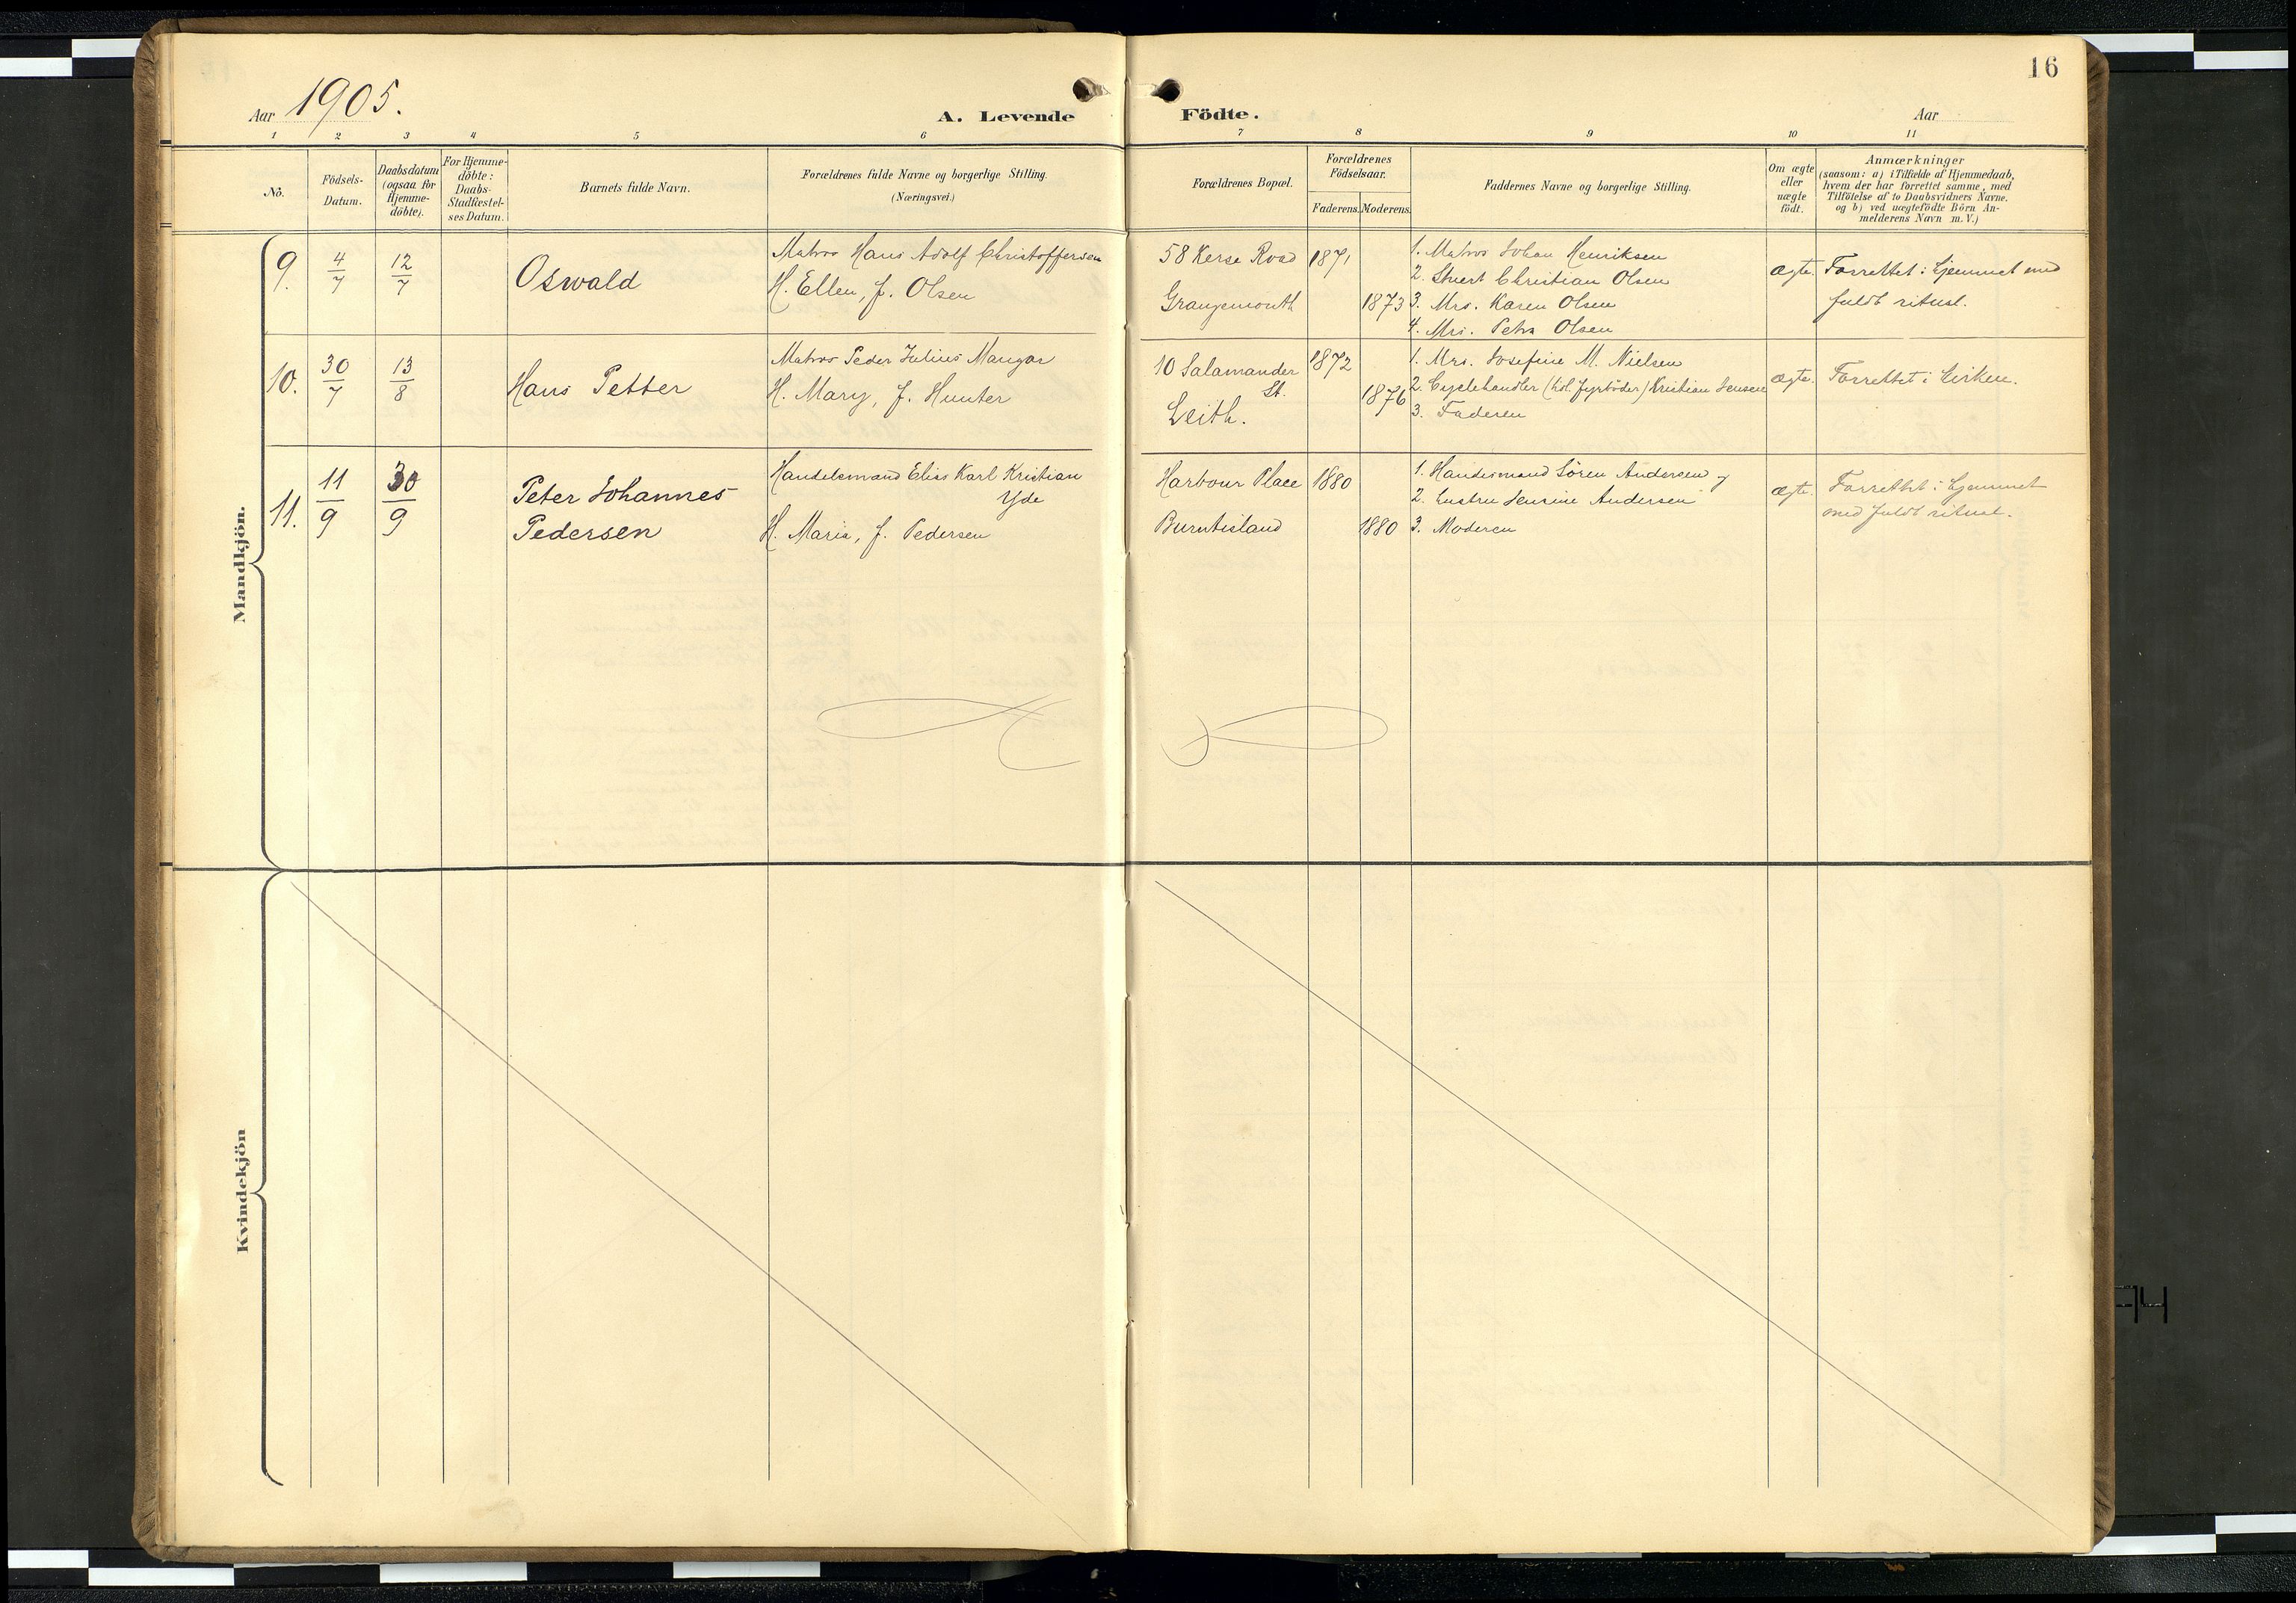 16
Aar 1905.
A. Levende Födte.
Aar
1 2 3 4 5 6 7 8 9 10 11
No.
Födsels-
Datum.
Daabsdatum
(ogsaa for
Hjemme-
döbte).
For Hjemme-
döbte:
Daabs-
Stadfæstel-
ses Datum.
Barnets fulde Navn.
Forældrenes fulde Navne og borgerlige Stilling.
(Næringsvei.)
Forældrenes Bopæl.
Forældrenes
Födselsaar.
Faderens. Moderens.
Faddernes Navne og borgerlige Stilling.
Om ægte
eller
uægte
födt.
Anmærkninger
(saasom: a) i Tilfælde af Hjemmedaab,
hvem der har forrettet samme, med
Tilföielse af to Daabsvidners Navne.
og b) ved uægtefödte Börn An-
melderens Navn m. V.)
Mandkjön.
9.
4/7
12/7
Oswald
Matros Hans Adolf Christoffersen
H. Ellen, f. Olsen
58 Kerse Road
Grangemouth
1871
1873
1. Matros Johan Henriksen
2. Stuert Christian Olsen
3. Mrs. Karen Olsen
4. Mrs. Petra Olsen
ægte.
Forrettet i hjemmet med
fuldt ritual.
10.
30/7
13/8
Hans Petter
Matros Peder Julius Mangar
H. Mary, f. Hunter
10 Salamander
St.
Leith.
1872
1876
1. Mrs. Josefine M. Nielsen
2. Cyclehandler (tidl. fyrböder) Kristian Jensen
3. Faderen
ægte.
Forrettet i kirken.
11.
11/9
30/9
Peter Johannes
Pedersen
Handelsmand Elias Karl Kristian
Yde
H. Maria, f. Pedersen
Harbour Place
Burntisland
1880
1880
1. Handesmand Sören Andersen og
2. hustru Jensine Andersen
3. Moderen
ægte.
Forrettet i hjemmet
med fuldt ritual.
Kvindekjön